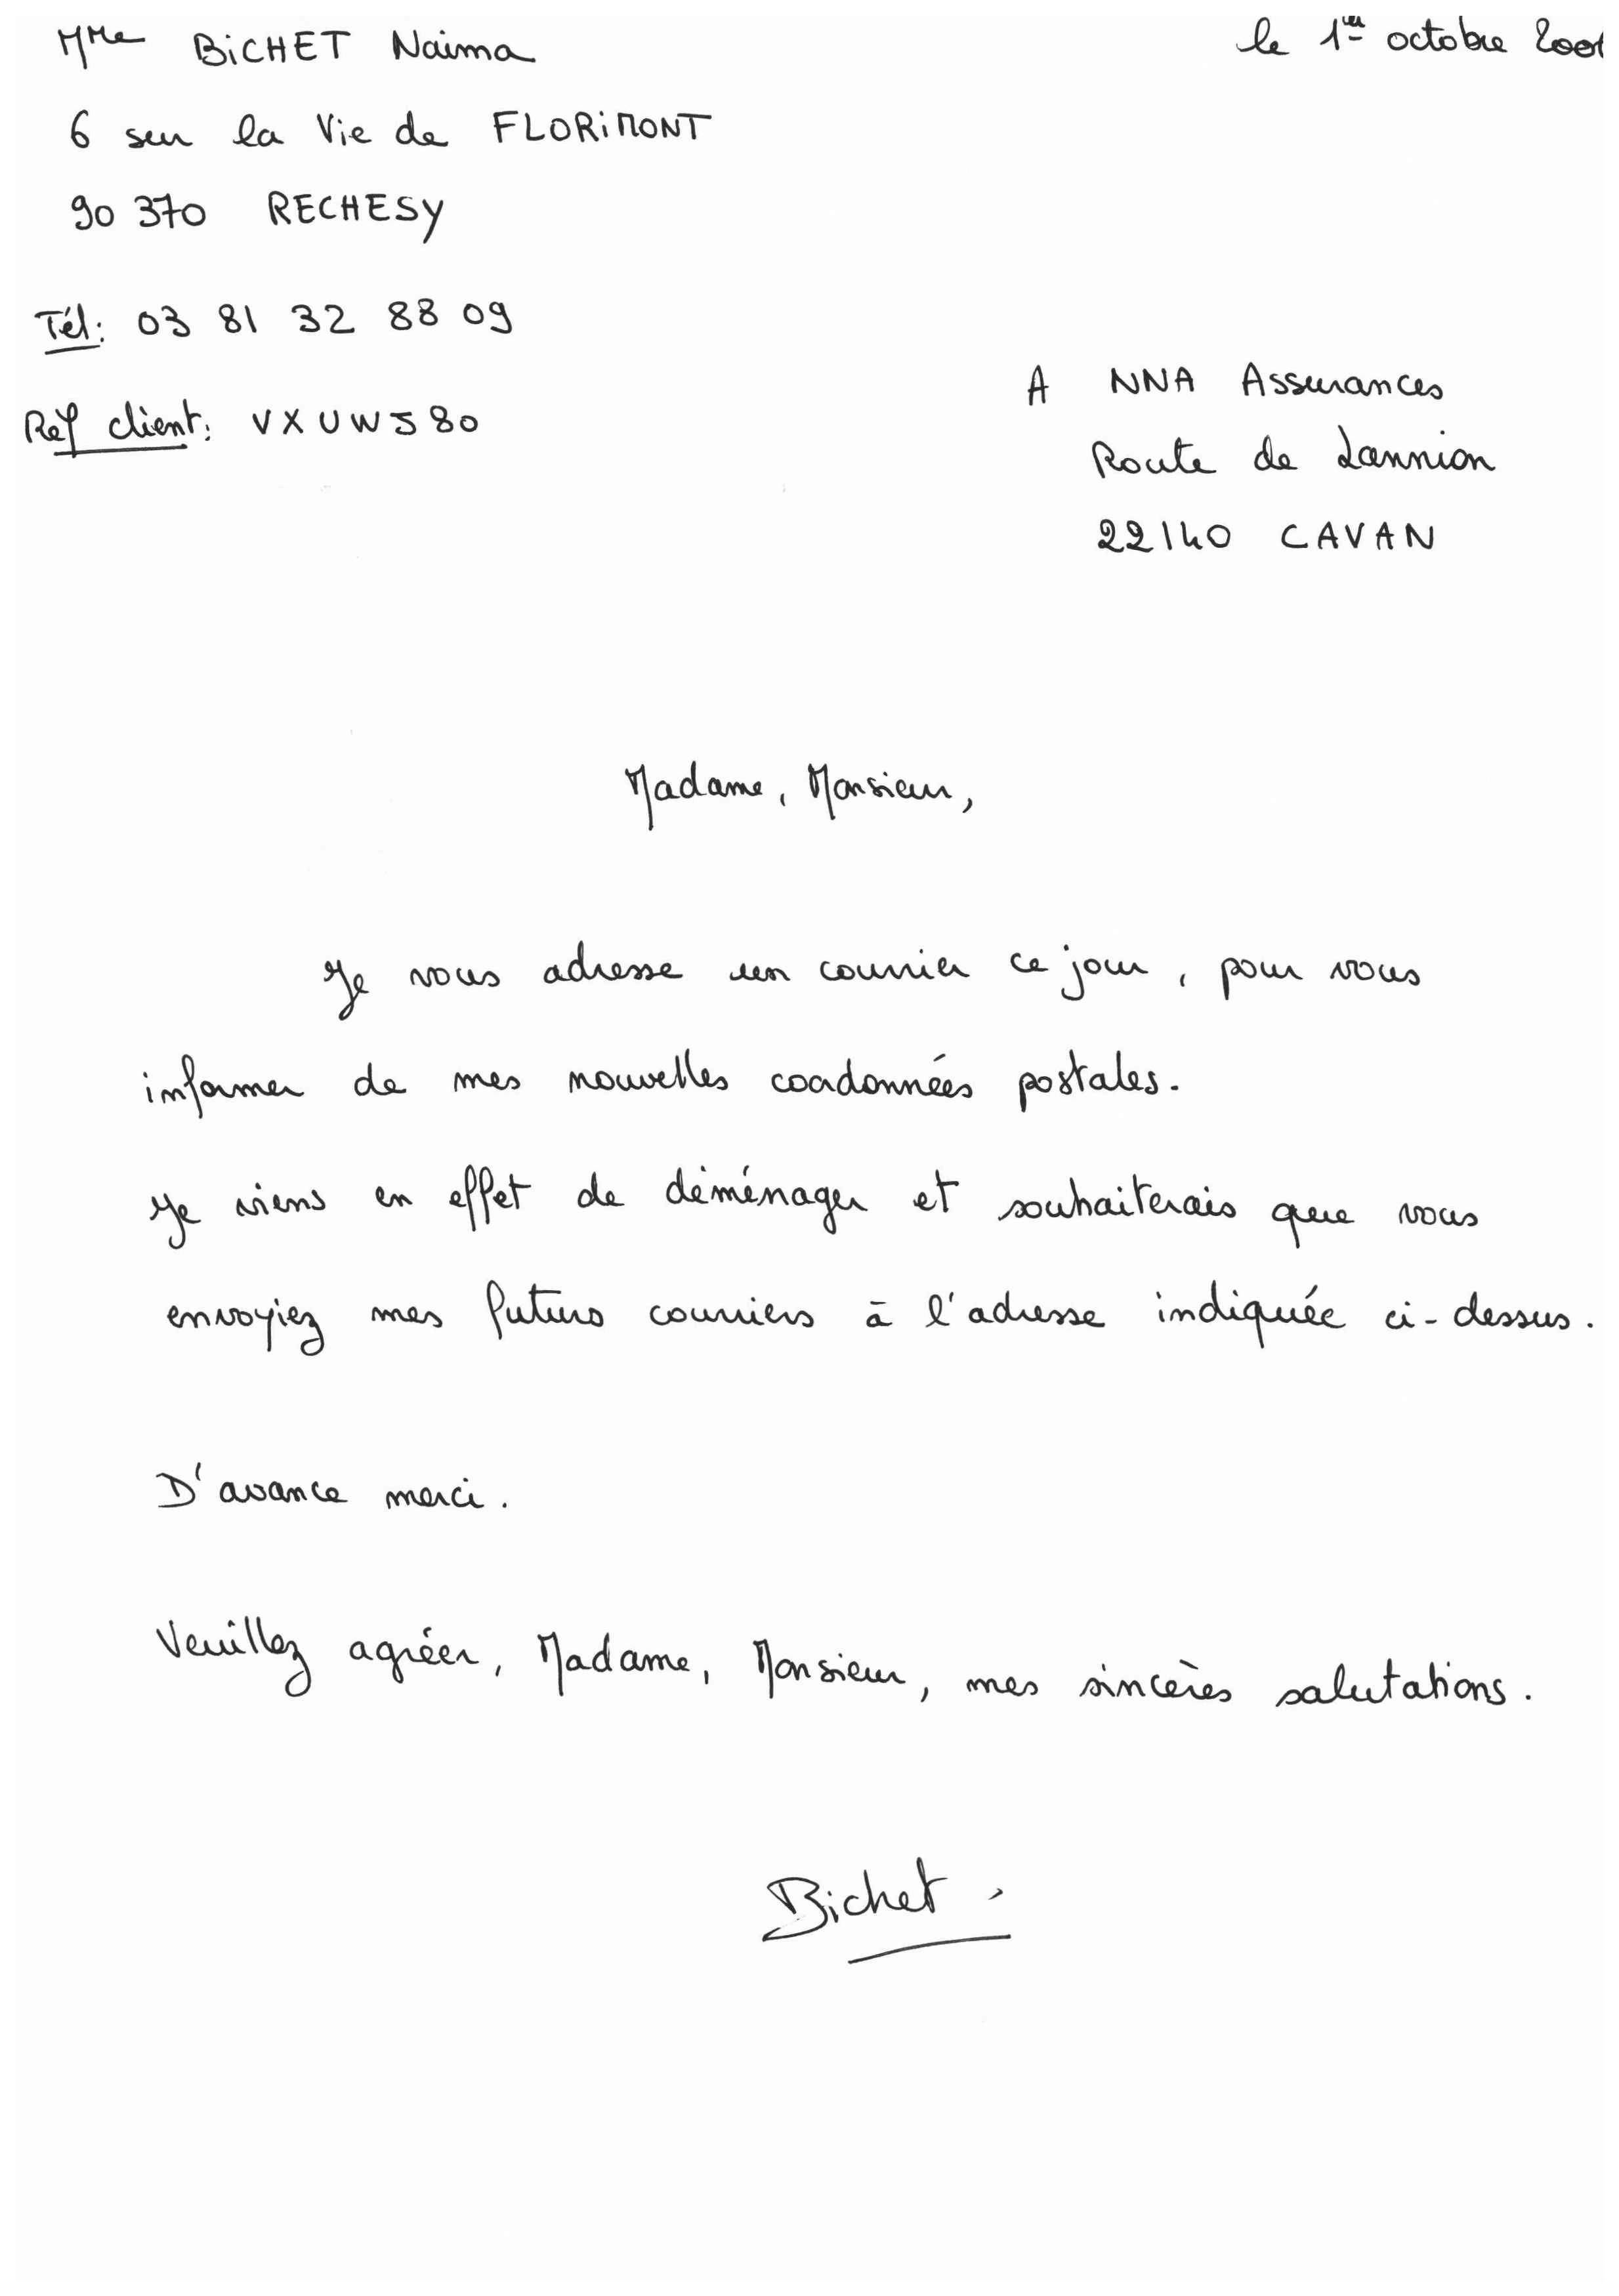 Mme BICHET Naima
le 1er octobre
6 sur la Vie de FLORIMONT
90 370 RECHESY
Tél: 03 81 32 88 09
A NNA Assurances
Réf client: VXUWJ80
Route de Lannion
22140 CAVAN
Madame, Monsieur,
Je vous adresse un courrier ce jour, pour vous
informer de mes nouvelles coordonnées postales.
Je viens en effet de déménager et souhaiterais que vous
envoyiez mes futurs courriers à l'adresse indiquée ci-dessus.
D'avance merci.
Veuillez agréer, Madame, Monsieur, mes sincères salutations.
Bichet